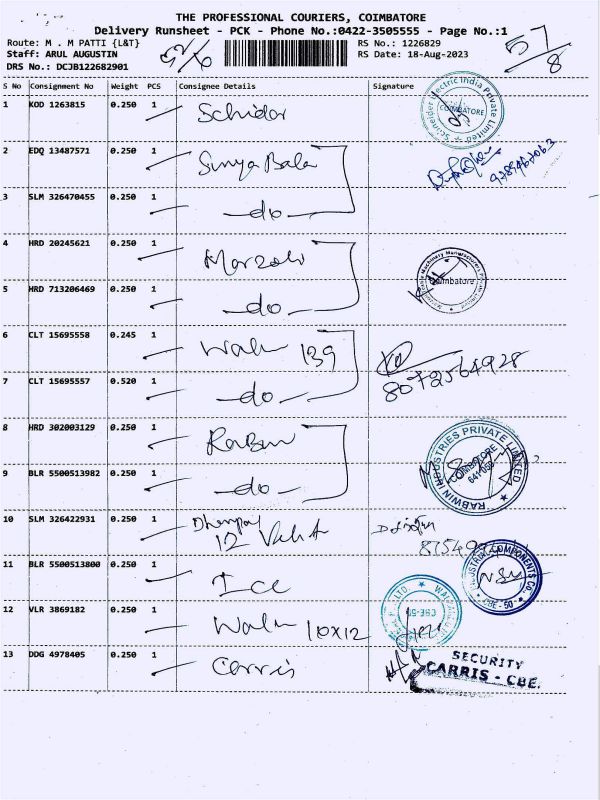 THE PROFESSIONAL COURIERS, COIMBATORE
Delivery Runsheet - PCK - Phone No.:0422-3505555 - Page No.:1
Route: M . M PATTI {L&T} RS No.: 1226829
Staff: ARUL AUGUSTIN RS Date: 18-Aug-2023
DRS No.: DCJB122682901 57/8
S No Consignment No Weight PCS Consignee Details Signature
1 KOD 1263815 0.250 1 Schider
Schneider Electric India Private Limited COIMBATORE
2 EDQ 13487571 0.250 1 Surya Bala
3 SLM 326470455 0.250 1 -do-
4 HRD 20245621 0.250 1 Marzoli
Coimbatore
5 HRD 713206469 0.250 1 -do-
6 CLT 15695558 0.245 1 Walu 139
8072564928
7 CLT 15695557 0.520 1 -do-
8 HRD 302003129 0.250 1 Rabwin
RABWIN INDUSTRIES PRIVATE LIMITED COIMBATORE
9 BLR 5500513982 0.250 1 -do-
10 SLM 326422931 0.250 1 12
11 BLR 5500513800 0.250 1 Icc
INDUSTRIAL COMPONENTS CO. CBE - 50
12 VLR 3869182 0.250 1 Walu 10x12
CBE-50
13 DDG 4978405 0.250 1 Carris
SECURITY
CARRIS - CBE.